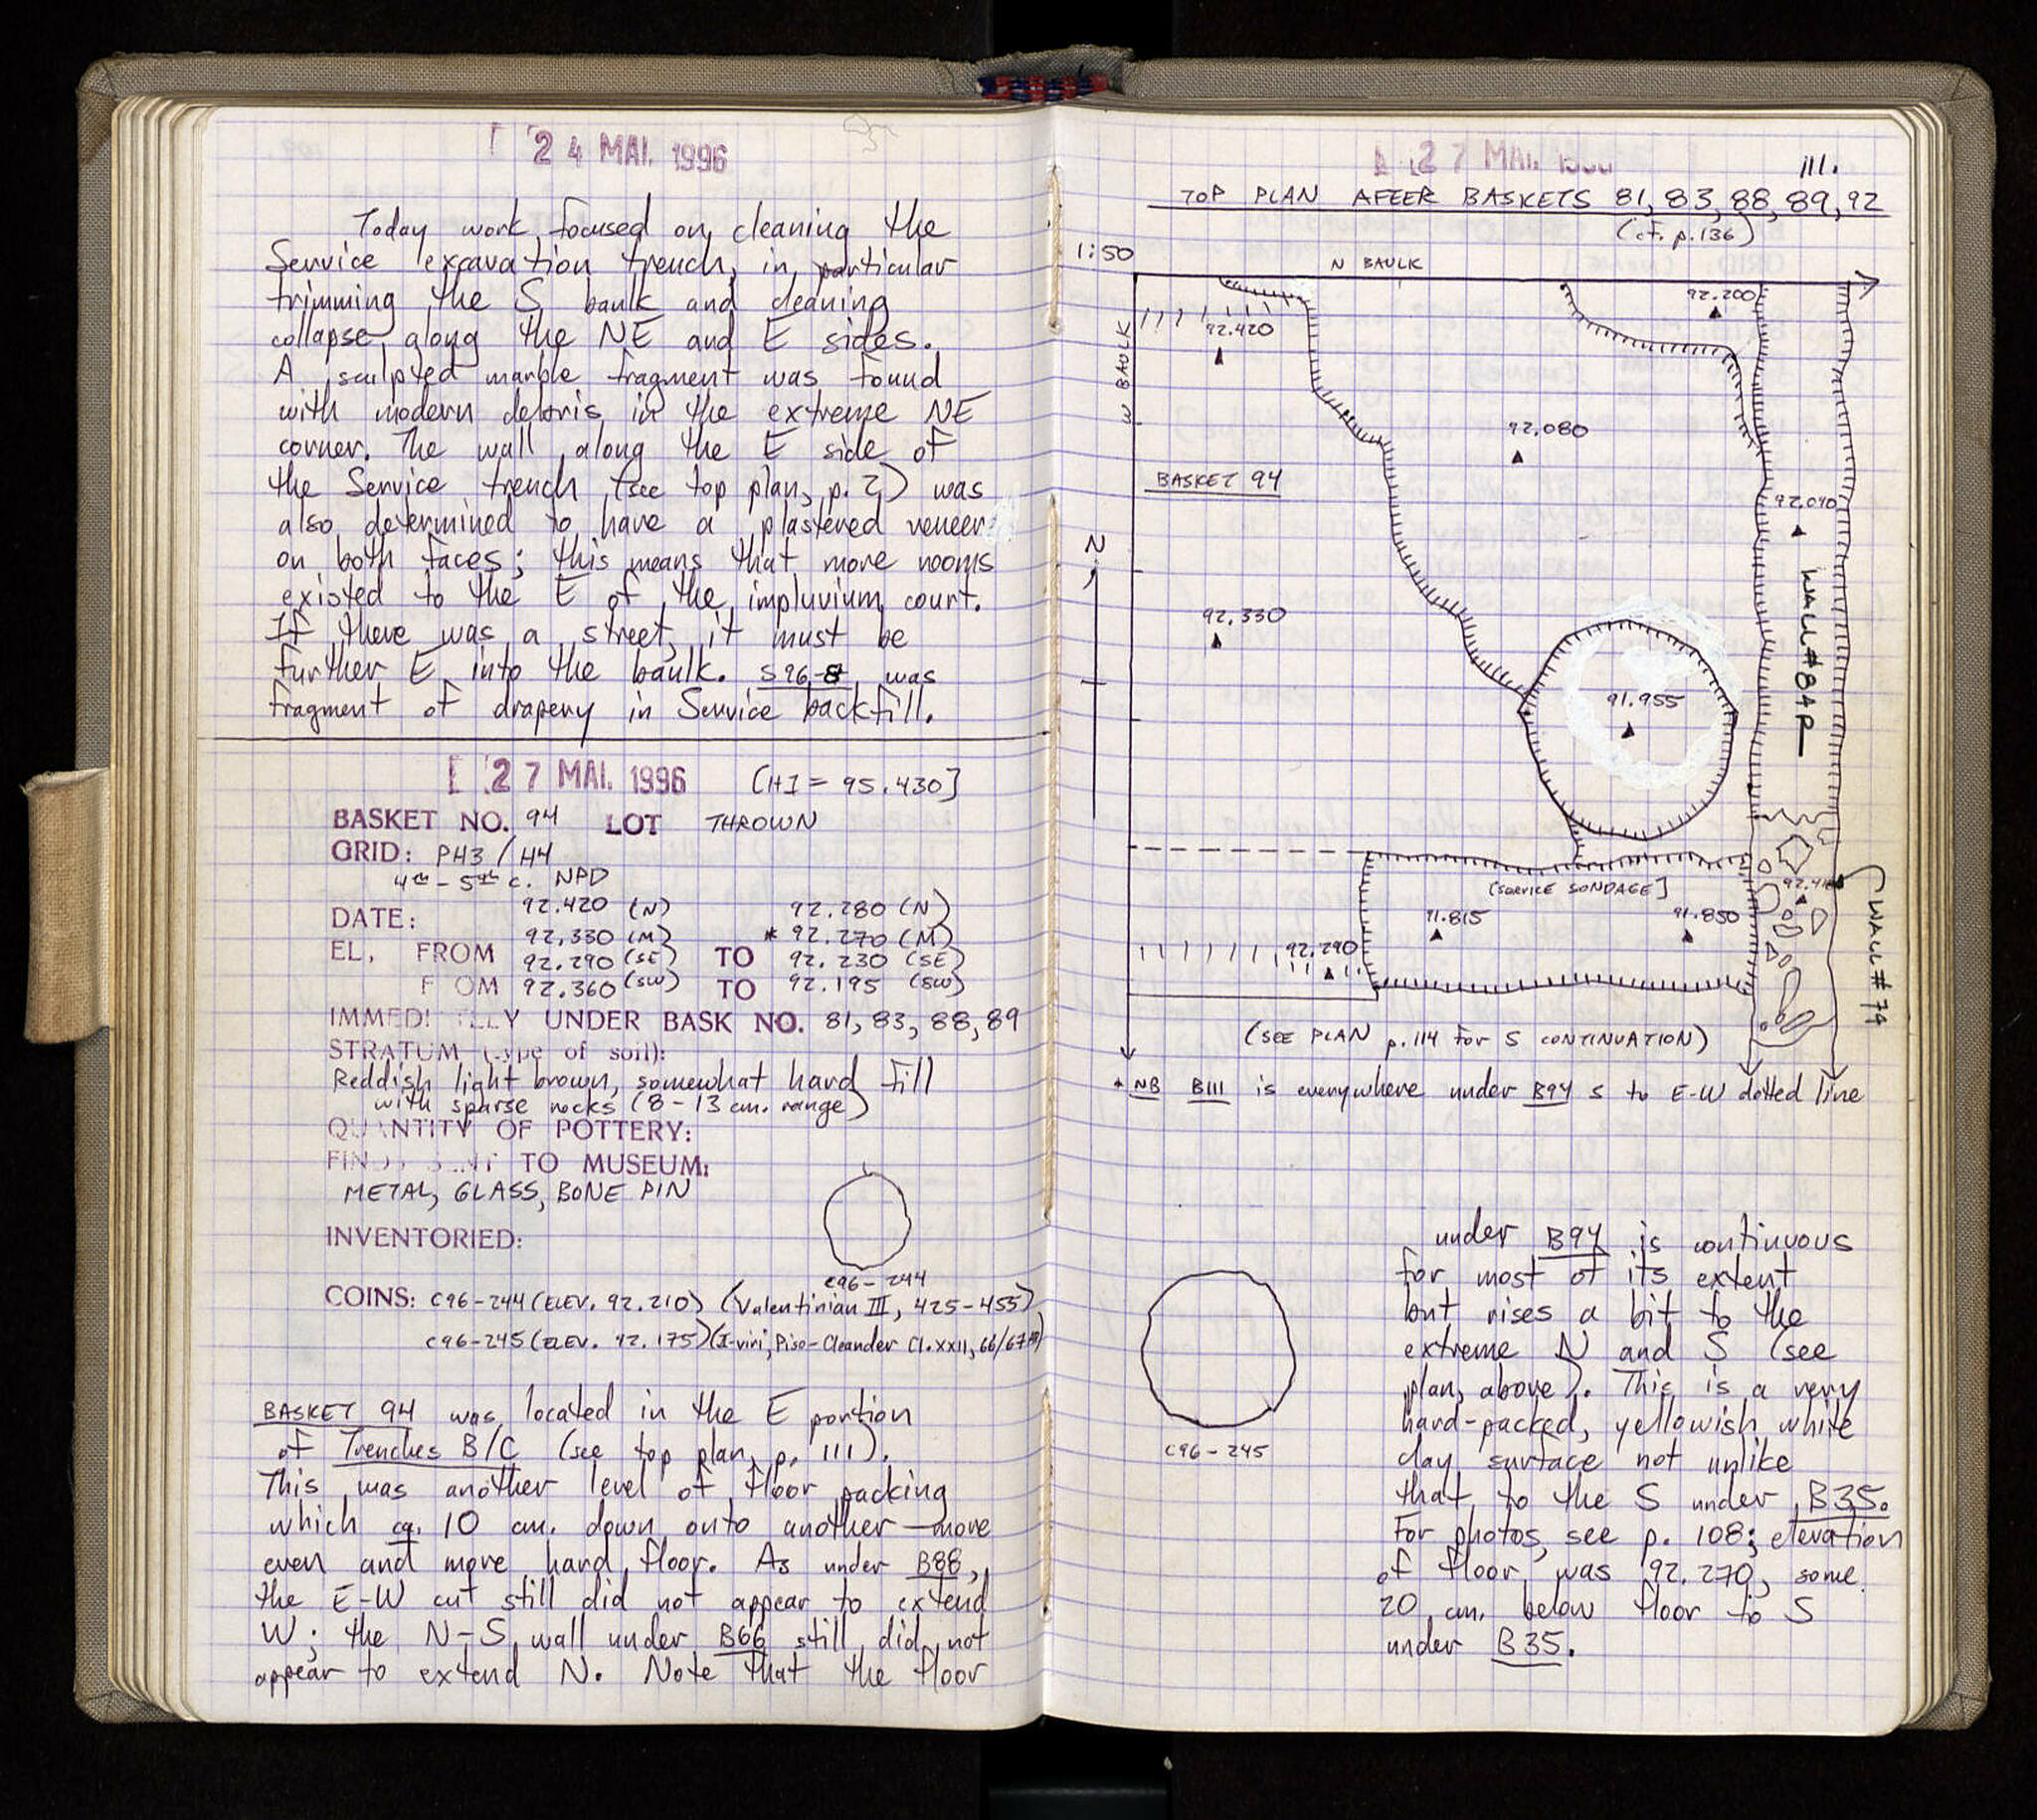 24 MAI. 1996
Today work focused on cleaning the
Service excavation trench, in particular
trimming the S baulk and cleaning
collapse along the NE and E sides.
A sculpted marble fragment was found
with modern debris in the extreme NE
corner. The wall along the E side of
the Service trench (see top plan, p. 2) was
also determined to have a plastered veneer
on both faces; this means that more rooms
existed to the E of the impluvium court.
If there was a street, it must be
further E into the baulk. S96-8 was
fragment of drapery in Service backfill.
27 MAI. 1996 [HI = 95.430]
BASKET NO. 94 LOT THROWN
GRID: PH3 / H4
4th - 5th c. NPD
DATE: 92.420 (N) 92.280 (N)
92.330 (M) * 92.270 (M)
EL. FROM 92.290 (SE) TO 92.230 (SE)
F OM 92.360 (SW) TO 92.195 (SW)
IMMEDI LY UNDER BASK NO. 81, 83, 88, 89
STRATUM (type of soil):
Reddish light brown, somewhat hard fill
with sparse rocks (8-13 cm. range)
QUANTITY OF POTTERY:
FINDS SENT TO MUSEUM:
METAL, GLASS, BONE PIN
INVENTORIED:
C96-244
COINS: C96-244 (ELEV. 92.210) (Valentinian III, 425-455)
C96-245 (ELEV. 92.175) (II-viri, Piso-Cleander Cl. XXII, 66/67 AD)
BASKET 94 was located in the E portion
of Trenches B/C (see top plan, p. 111).
This was another level of floor packing
which ca. 10 cm. down onto another more
even and more hard floor. As under B88,
the E-W cut still did not appear to extend
W; the N-S wall under B66 still did not
appear to extend N. Note that the floor
27 MAI. 111.
TOP PLAN AFTER BASKETS 81, 83, 88, 89, 92
(cf. p.136)
1:50
N BAULK
W BAULK
92.200
92.420
92.080
BASKET 94
92.090
N
WALL #84P
92.330
91.955
[SERVICE SONDAGE]
91.815
91.850
92.290
WALL #74
(SEE PLAN p.114 for S CONTINUATION)
* NB B111 is everywhere under B94 S to E-W dotted line
C96-245
under B94 is continuous
for most of its extent
but rises a bit to the
extreme N and S (see
plan, above). This is a very
hard-packed, yellowish white
clay surface not unlike
that to the S under B35.
For photos, see p. 108; elevation
of floor was 92.270, some
20 cm. below floor to S
under B35.